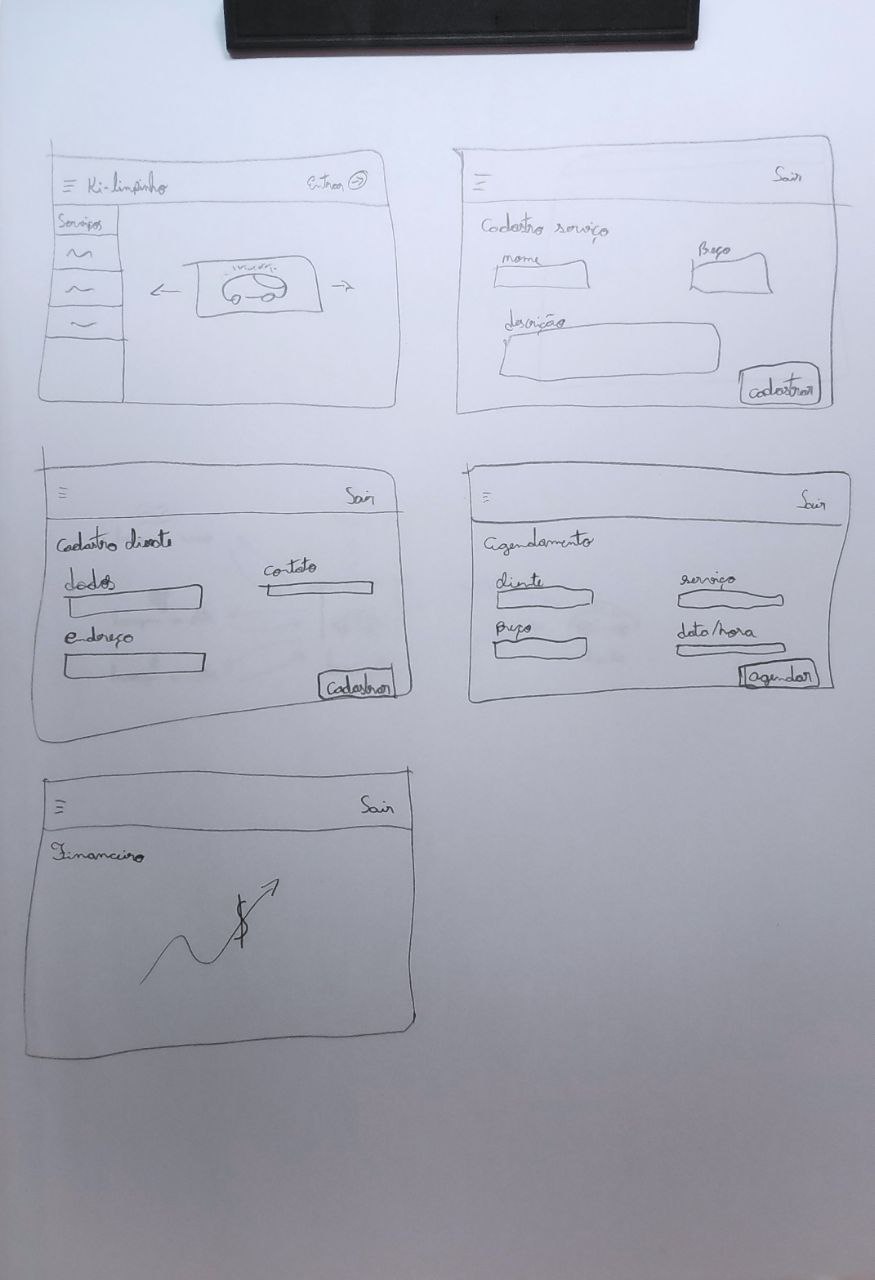 Ki-limpinho
Entrar
Serviços
Sair
Cadastro serviço
nome
Preço
descrição
Cadastrar
Sair
Cadastro cliente
dados
contato
endereço
Cadastrar
Sair
Agendamento
cliente
serviço
preço
data/hora
agendar
Sair
Financeiro
$